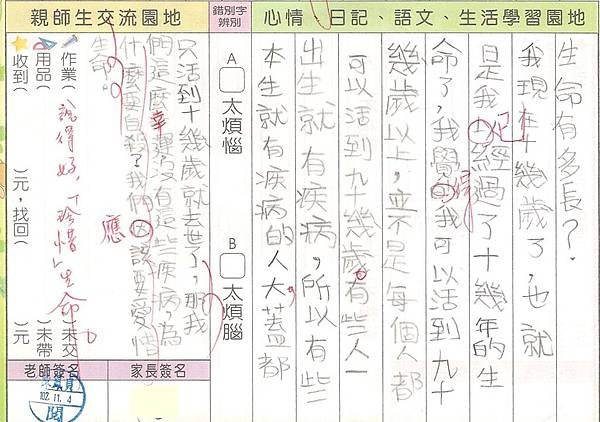 心情、日記、語文、生活學習園地
生命有多長?
我現在十幾歲了,也就
是我已經過了十幾年的生
命了,我覺的得我可以活到九十
幾歲以上,並不是每個人都
可以活到九十幾歲,有些人一
出生就有疾病,所以有些
本生就有疾病的人大蓋都
錯別字辨別
A
太煩惱
B
太煩腦
親師生交流園地
只活到十幾歲就去世了,那我
們這麼幸運沒有這些疾病,為
什麼要自殺了我們因該要愛惜
應
生命。
說得好,「珍惜」生命
作業( )未交
用品( )未帶
收到( )元,找回( )元
家長簽名
老師簽名
102.11.4
閱